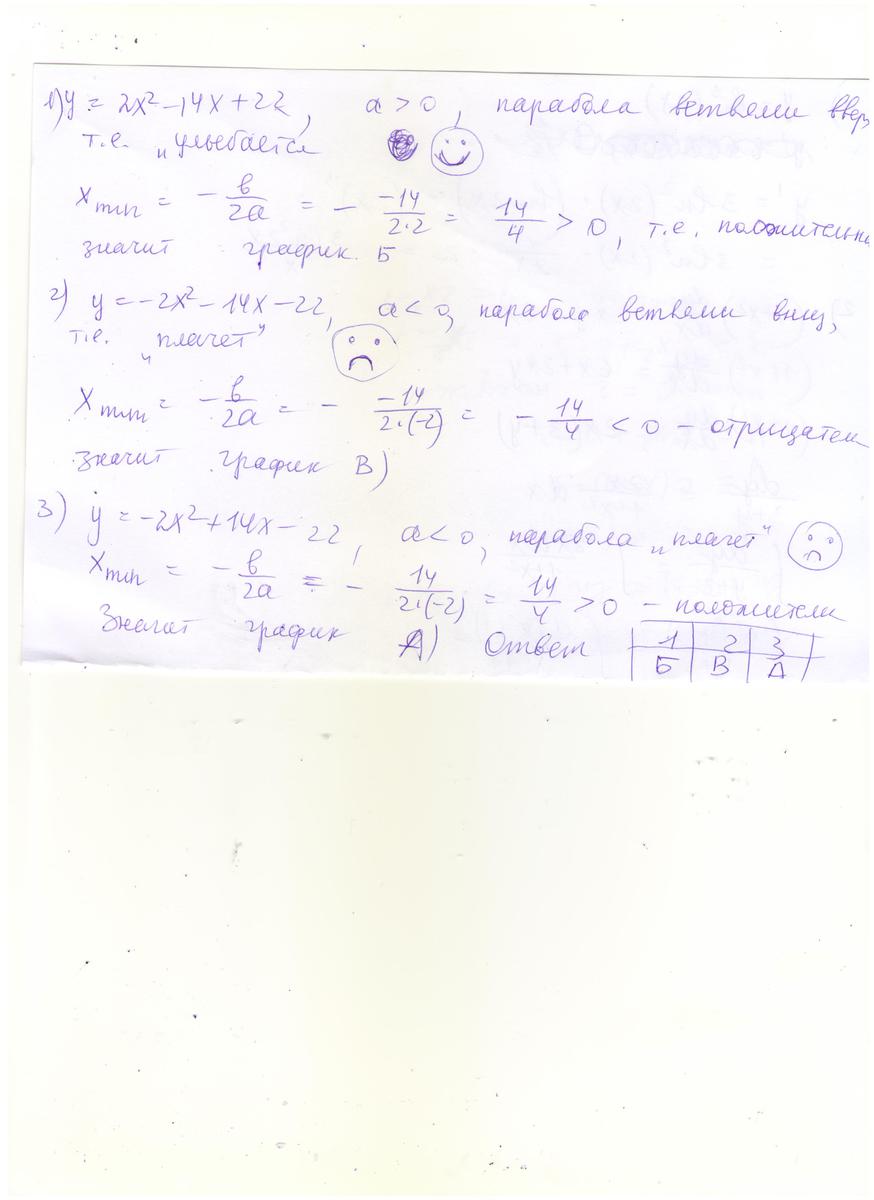 1) y = 2x² - 14x + 22, a > 0, парабола ветвями вверх
т.е. "улыбается"
x min = - в/2a = - -14/2·2 = 14/4 > 0, т.е. положительна
значит график Б
2) y = -2x² - 14x - 22, a < 0, парабола ветвями вниз,
т.е. "плачет"
x min = - в/2a = - -14/2·(-2) = - 14/4 < 0 - отрицател
значит график В)
3) y = -2x² + 14x - 22, a < 0, парабола "плачет"
x min = - в/2a = - 14/2·(-2) = 14/4 > 0 - положители
Значит график А) Ответ 1 2 3
Б В А